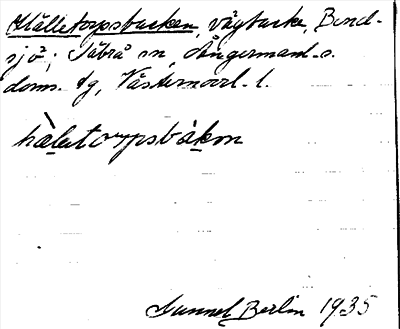 Hålletorpsbacken, vägbacke, Bend-
sjö; Säbrå sn, Ångermanl. s.
doms. tg, Västernorrl. l.
hàletorpsbákən
Gunnel Berlin 1935